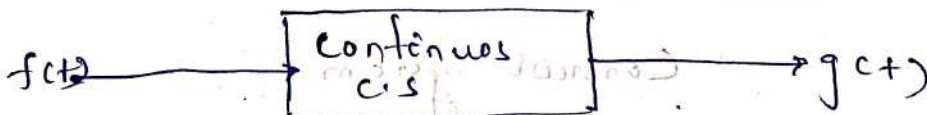 f(t)
Continuos
c.s
g(t)